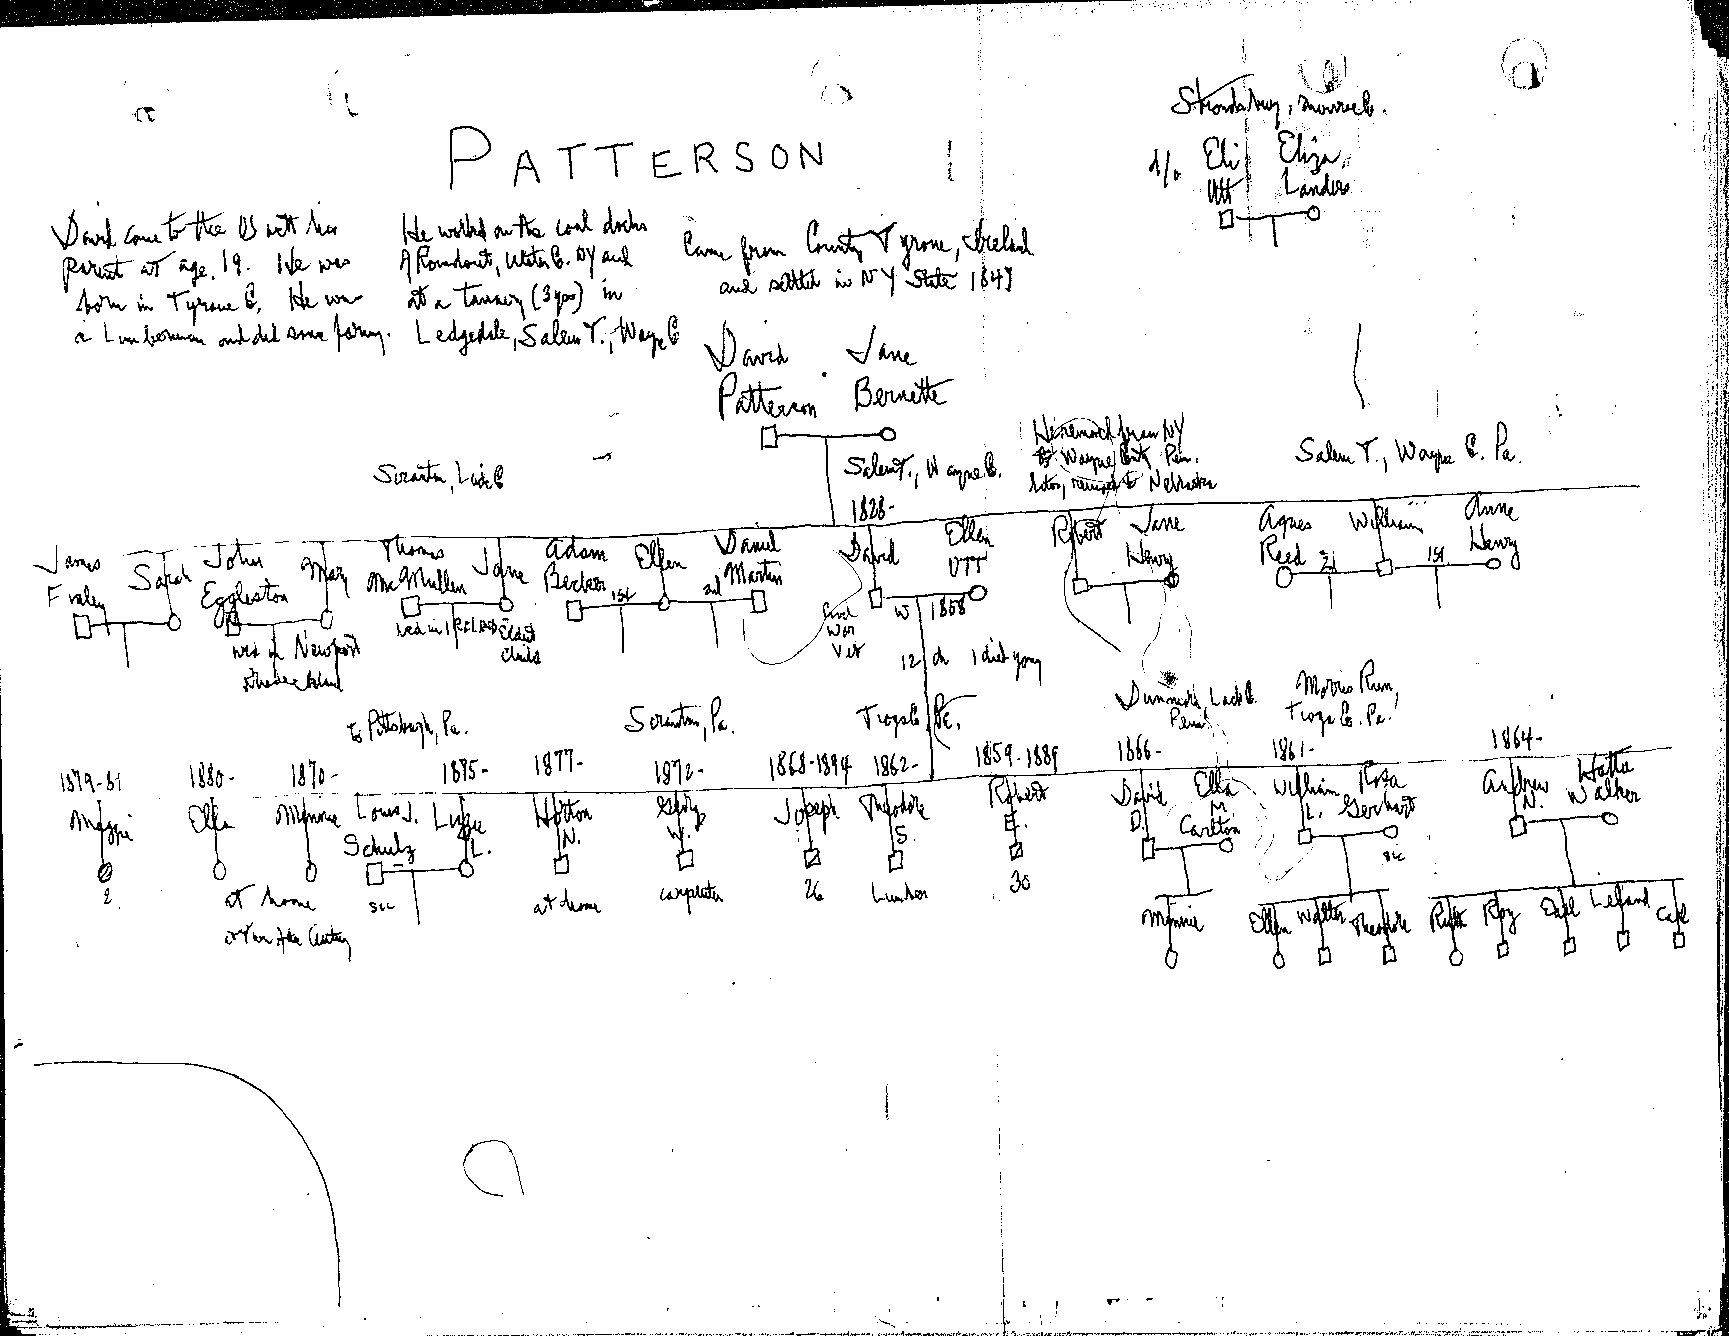 Stroudsburg, Monroe C.
d/o Eli Eliza
Utt Landers
PATTERSON
David came to the US with his
parent at age 19. He was
born in Tyrone C. He was
a Lumberman and did some farming.
He worked on the coal docks
A Roundout, Ulster C. NY and
at a Tannery (3 yrs) in
Ledgedale, Salem T., Wayne C
Came from County Tyrone, Ireland
and settled in NY State 1849
David Jane
Patterson Bernette
Scranton, Lack C
Salem T., Wayne C.
He removed from NY
to Wayne Cnty, Penn.
later, removed to Nebraska
Salem T., Wayne C. Pa.
1828-
James
Fraley
Sarah
John
Eggleston
Mary
Thomas
McMullen
Jane
Adam
Becker
1st
Ellen
2nd
Daniel
Martin
David
Ellen
UTT
Robert
Jane
Henry
Agnes
Reed
2d
William
1st
Anne
Henry
wed in Newport
Rhode Island
wed in IRELAND
Eldest
Child
Civil
War
Vet
W 1858
12 ch 1 died young
to Pittsburgh, Pa.
Scranton, Pa.
Tioga C.
Dunmore, Lack C.
Penn
Morris Run,
Tioga Co. Pa.
1879-81
Maggie
2
1880-
Ella
1870-
Minnie
at home
Louis J.
Schulz
1875-
Lizzie
L.
1877-
Horton
N.
at home
1872-
W.
carpenter
1868-1894
Joseph
26
1862-
Theodore
S.
Lumber
1859-1889
Robert
E.
30
1866-
David
D.
Ella
M
Carlton
1861-
William
L.
Rosa
Gerhart
1864-
Andrew
N.
Hattie
Walker
Minnie
Ellen Walter Theodore
Ruth Roy Earl Leland Carl